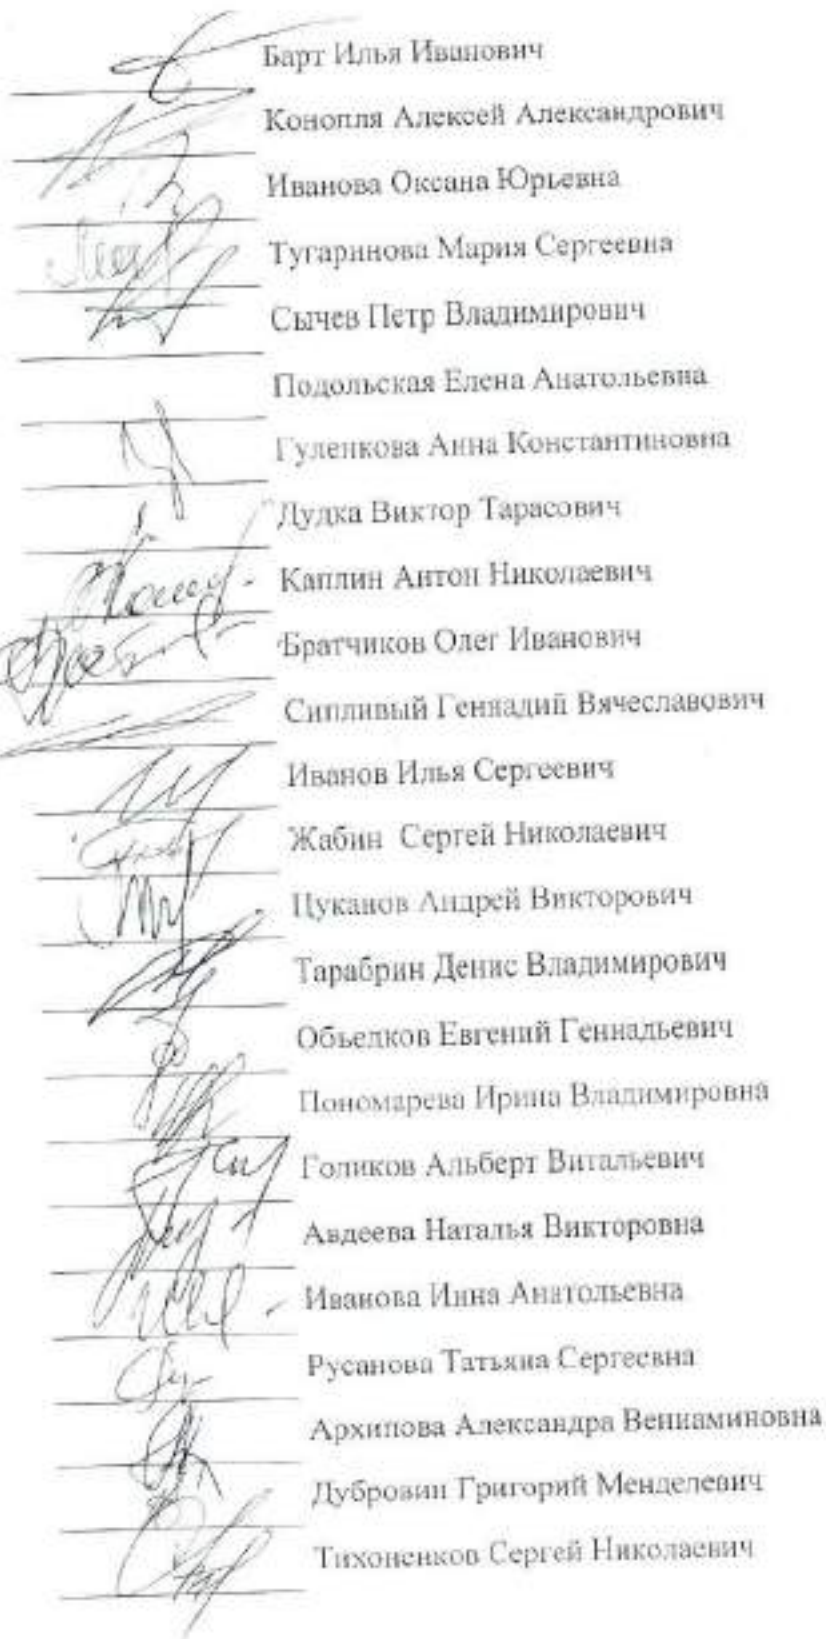 Барт Илья Иванович
Конопля Алексей Александрович
Иванова Оксана Юрьевна
Тугаринова Мария Сергеевна
Сычев Петр Владимирович
Подольская Елена Анатольевна
Гуленкова Анна Константиновна
Дудка Виктор Тарасович
Каплин Антон Николаевич
Братчиков Олег Иванович
Сипливый Геннадий Вячеславович
Иванов Илья Сергеевич
Жабин Сергей Николаевич
Цуканов Андрей Викторович
Тарабрин Денис Владимирович
Обьедков Евгений Геннадьевич
Пономарева Ирина Владимировна
Голиков Альберт Витальевич
Авдеева Наталья Викторовна
Иванова Инна Анатольевна
Русанова Татьяна Сергеевна
Архипова Александра Вениаминовна
Дубровин Григорий Менделевич
Тихоненков Сергей Николаевич